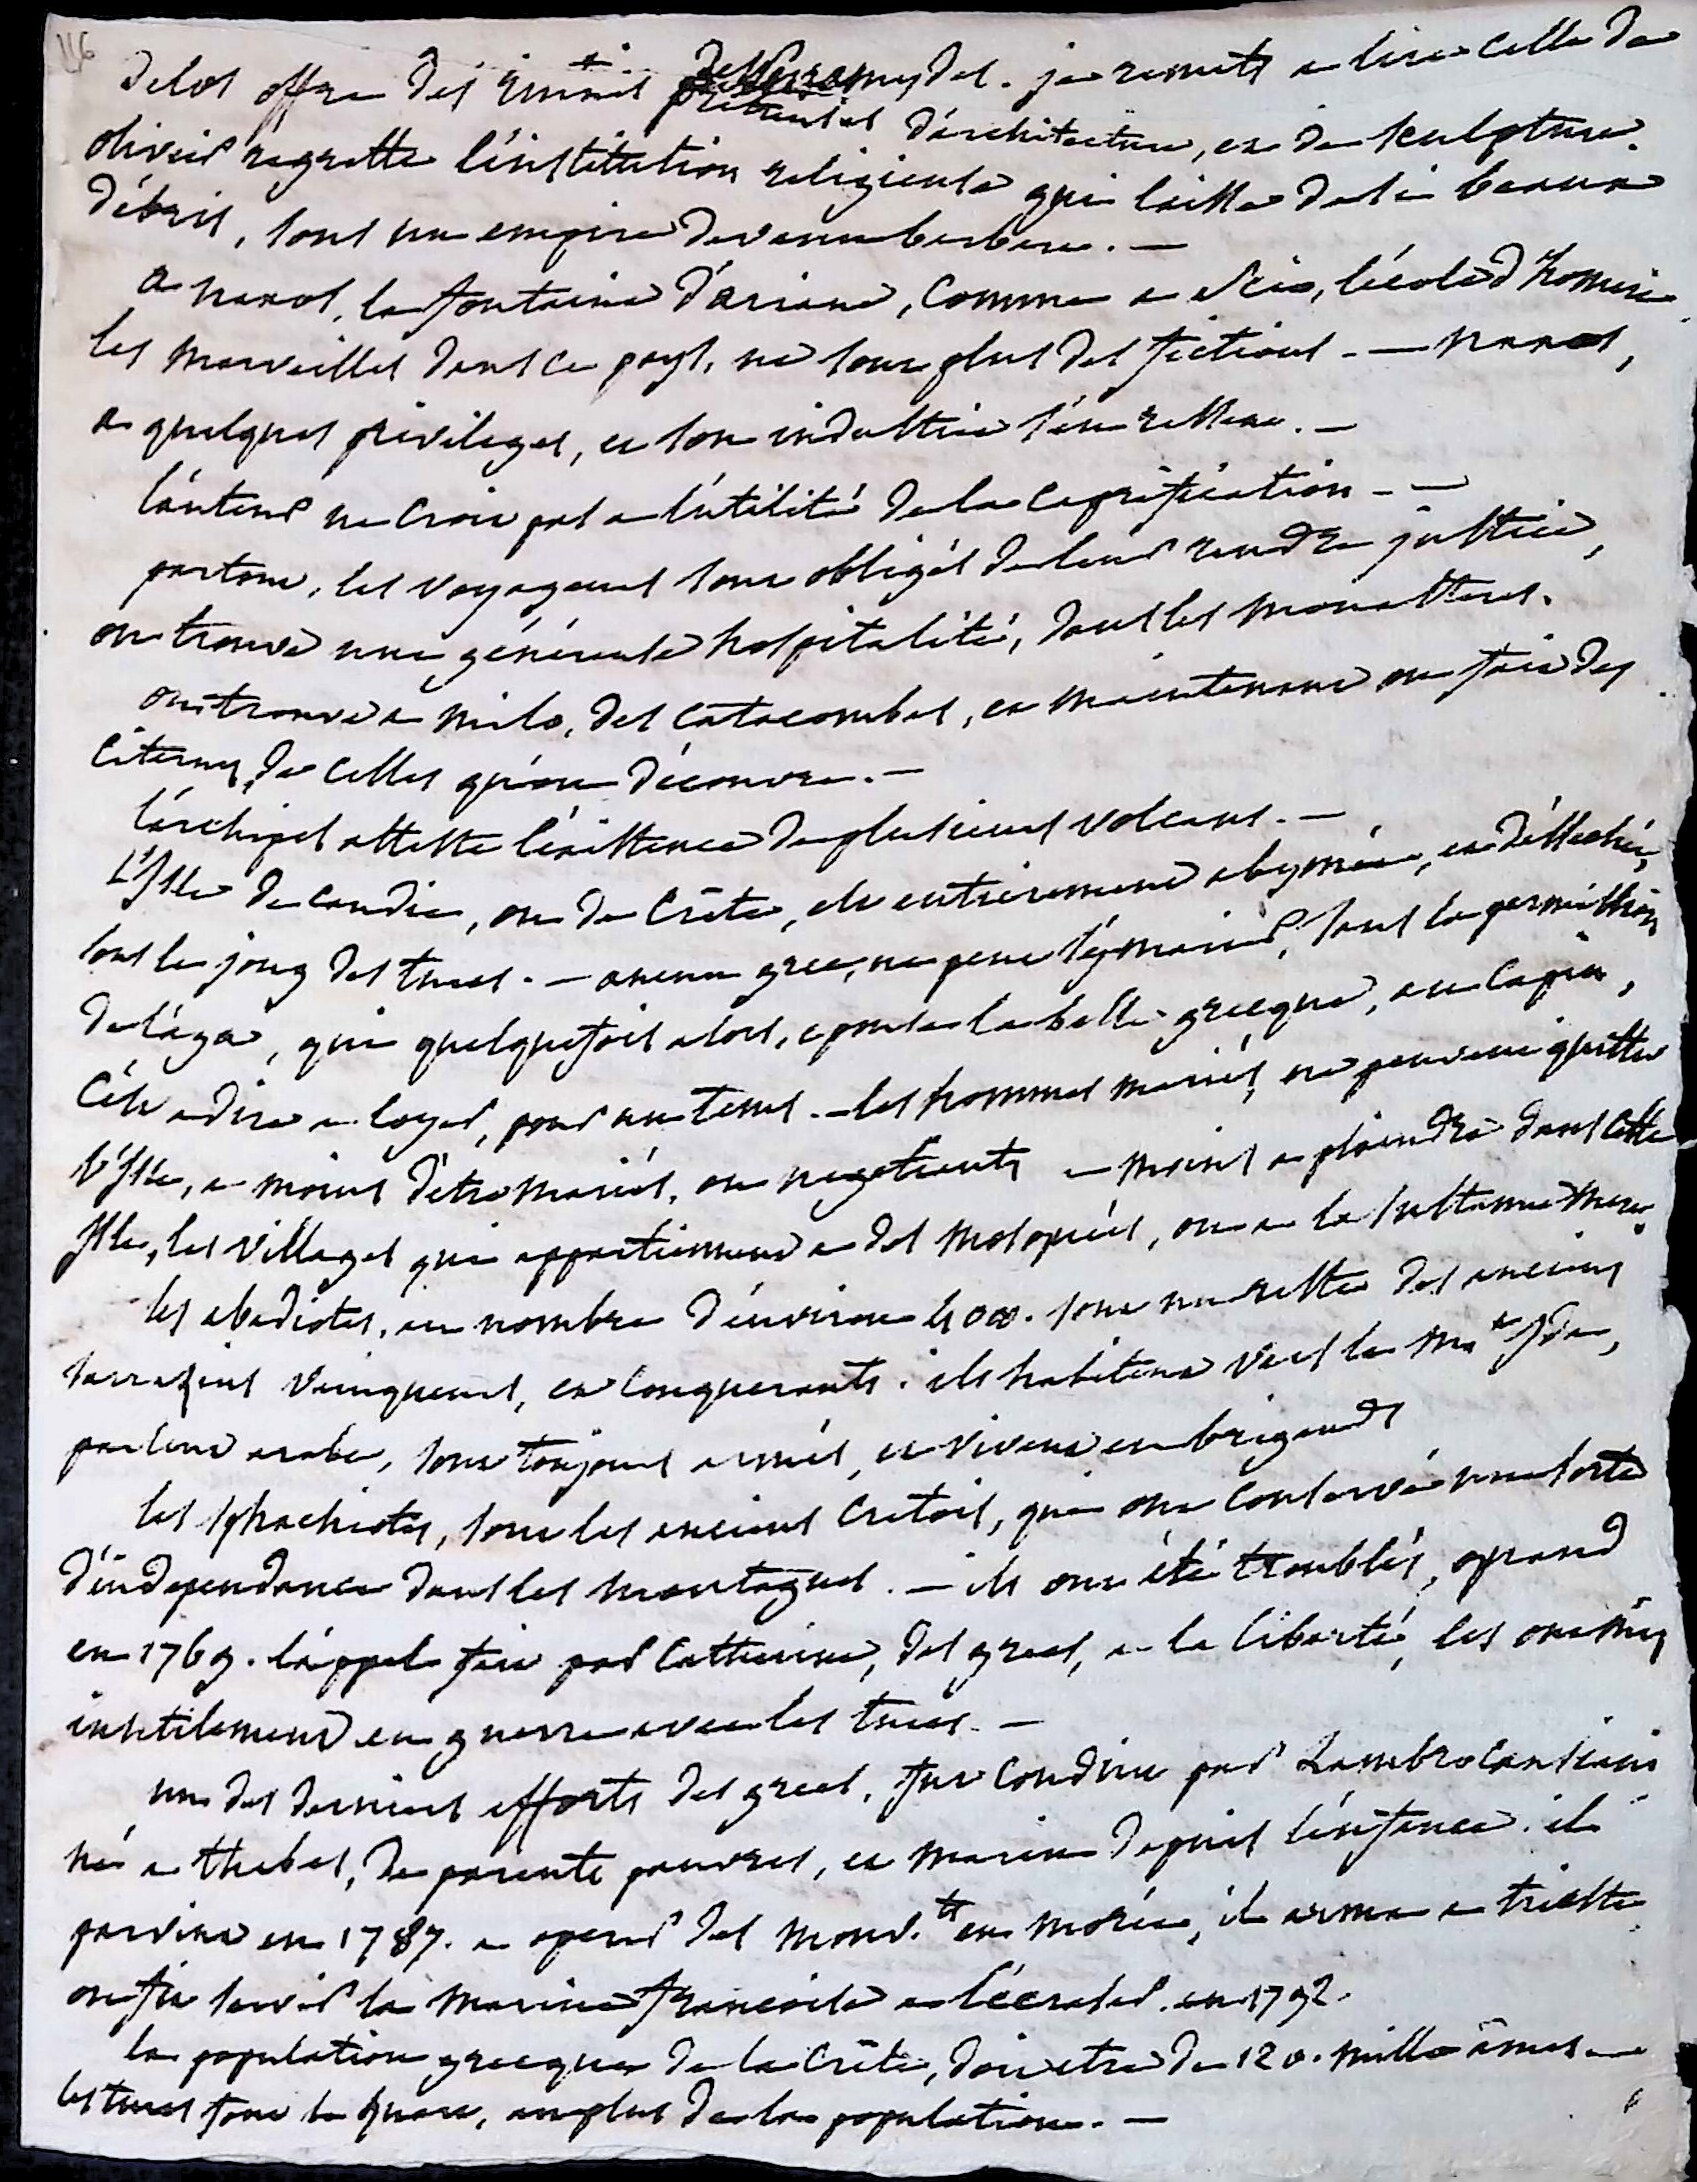 116
Delos offre des ruines des pyramydes. je remets a lire celle da
précieuses d'architecture, et de sculpture.
olivier regrette l'institution religieuse qui laissa de si beaux
débris, sous un empire devenu barbare. —
a naxos, la fontaine d'ariane, comme a scio, l'école d'homere
les merveilles dans ce pays, ne sont plus des fictions. — naxos,
a quelques privileges, et son industrie s'en ressent. —
l'auteur ne croit pas a l'utilité de la caprification. —
partout, les voyageurs sont obligés de leur rendre justice,
on trouve une généreuse hospitalité, dans les monasteres.
on trouve a milo, des catacombes, et maintenant on fait des
citernes, de celles qu'on découvre. —
l'archipel atteste l'existence de plusieurs volcans. —
L'Isle de candie, ou de Crête, est entierement abymée, et déssechée,
sous le joug des turcs. — aucun grec, ne peut s'y marier, sans la permission
de l'aga, qui quelquefois alors, epouse la belle grecque, au capin,
c'est a dire a loyer, pour un tems. — les hommes mariés, ne peuvent quitter
l'Isle, a moins d'être mariés, ou negotiants — moins a plaindre dans cette
Isle, les villages qui appartiennent a des mosquées, ou a la sultanne mere.
les abadiotes, au nombre d'environ 4000. sont un reste des anciens
sarrazins vainqueurs, et conquerants. ils habitent vers le M.t Ida,
parlent arabe, sont toujours armés, et vivent en brigands
les sphachiotes, sont les anciens Cretois, qui ont conservé une sorte
d'independance dans les montagnes. — ils ont été troublés, quand
en 1769. l'appel fait par Catherine, des grecs, a la liberté, les ont mis
inutilement en guerre avec les turcs. —
un des derniers efforts des grecs, fut conduit par Lambro Cansiani
né a thebes, de parents pauvres, et marin depuis l'enfance. il
parvint en 1787. a operer des mouv.ts en morée, il arma a trieste
on fit servir la marine françoise a l'écraser. en 1792.
la population grecque de la Crête, doit etre de 120. mille âmes —
les turcs font le quart, au plus de la population. —